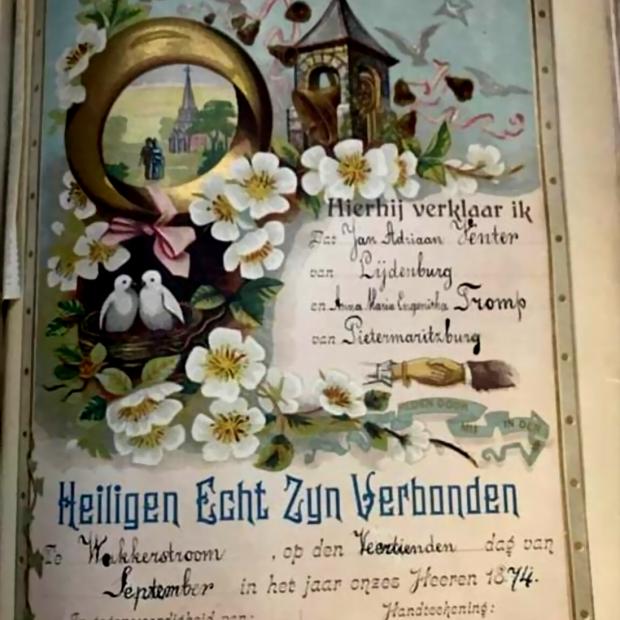 Hierhij verklaar ik
Dat Jan Adriaan Venter
van Lijdenburg
en Anna Maria Tromp
van Pietermaritzburg
HEDEN DOOR
MIJ IN DEN
Heiligen Echt Zyn Verbonden
Te Wakkerstroom, op den Veertienden dag van
September in het jaar onzes Heeren 1874.
In tegenwoordigheid van: Handteekening: